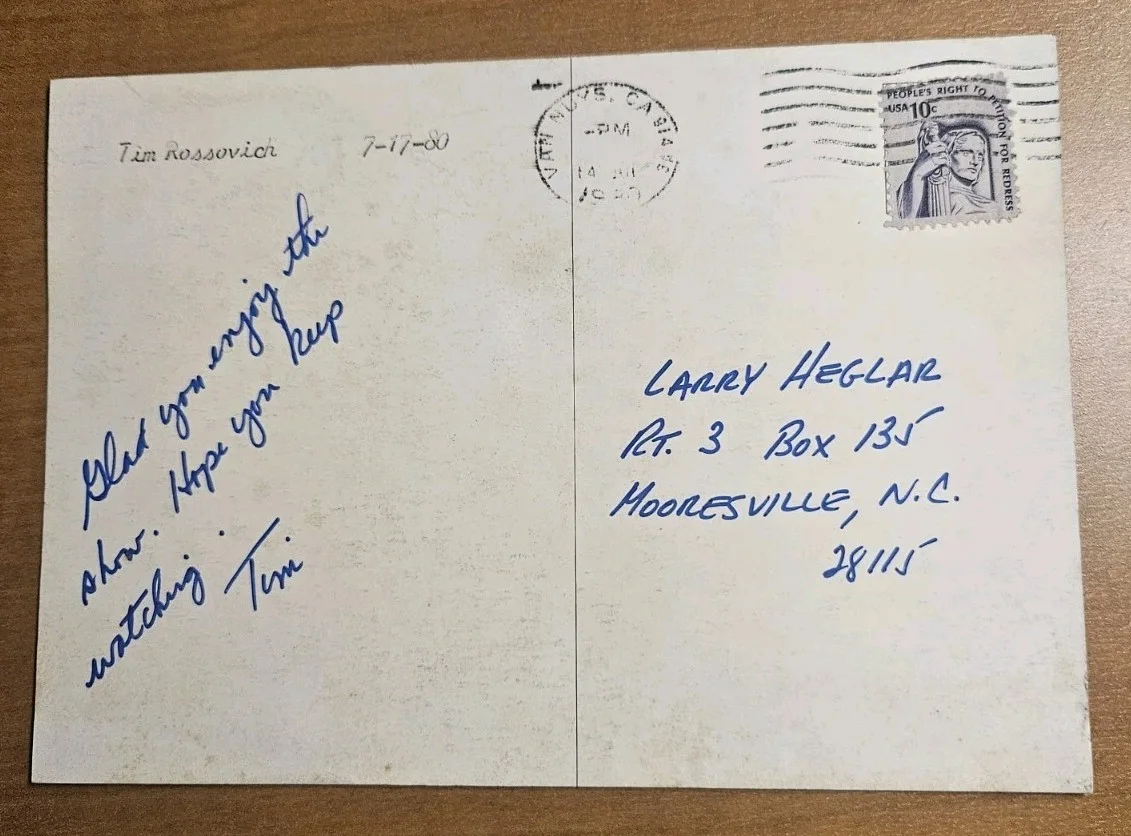 Tim Rossovich 7-17-80
VAN NUYS, CA 914
PM
14 JUL
1980
PEOPLE'S RIGHT TO PETITION FOR REDRESS
USA 10c
Glad you enjoy the
show. Hope you keep
watching.
Tim
LARRY HEGLAR
RT. 3 BOX 135
MOORESVILLE, N.C.
28115